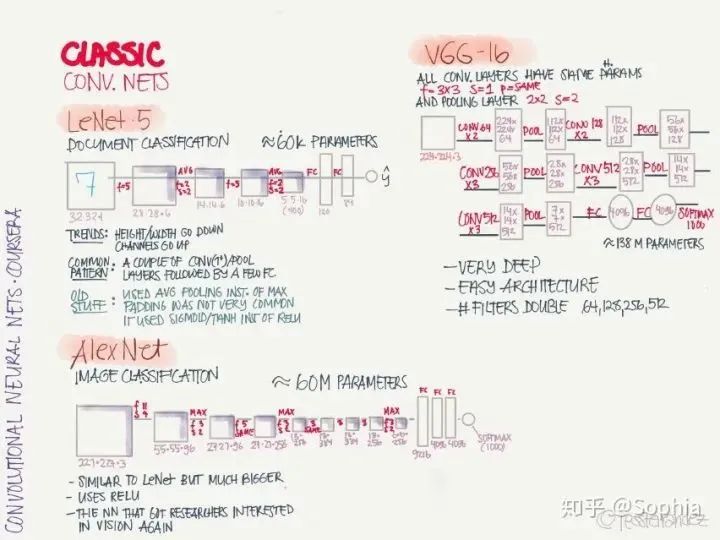 CLASSIC
CONV. NETS
LeNet-5
DOCUMENT CLASSIFICATION ≈60K PARAMETERS
7
f=5
AVG
f=2
s=2
f=5
AVG
f=2
s=2
FC
FC
ŷ
32·32·1
28·28·6
14·14·6
10·10·16
5·5·16
(400)
120
84
TRENDS: HEIGHT/WIDTH GO DOWN
CHANNELS GO UP
COMMON PATTERN: A COUPLE OF CONV(1+)/POOL
LAYERS FOLLOWED BY A FEW FC
OLD STUFF: USED AVG POOLING INST. OF MAX
PADDING WAS NOT VERY COMMON
IT USED SIGMOID/TANH INST OF RELU
AlexNet
IMAGE CLASSIFICATION ≈ 60M PARAMETERS
f 11
s 4
MAX
f 3
s 2
f 5
SAME
MAX
f 3
s 2
3
SAME
3
3
MAX
f 3
s 2
FC FC FC
227·227·3
55·55·96
27·27·96
27·27·256
13·13·
384
13·
384
13·
256
9216
4096
4096
SOFTMAX
(1000)
- SIMILAR TO LeNet BUT MUCH BIGGER
- USES RELU
- THE NN THAT GOT RESEARCHERS INTERESTED
IN VISION AGAIN
VGG-16
ALL CONV. LAYERS HAVE SAME PARAMS
f=3X3 S=1 P=SAME
AND POOLING LAYER 2x2 S=2
224·224·3
CONV 64
X2
224×
224×
64
POOL
112×
112×
64
CONV 128
X2
112×
112×
128
POOL
56×
56×
128
CONV 256
X3
56×
56×
256
POOL
28×
28×
256
CONV 512
X3
28×
28×
512
POOL
14×
14×
512
CONV 512
X3
14×
14×
512
POOL
7×
7×
512
FC
4096
FC
4096
SOFTMAX
1000
≈138 M PARAMETERS
- VERY DEEP
- EASY ARCHITECTURE
- # FILTERS DOUBLE 64,128,256,512
CONVOLUTIONAL NEURAL NETS · COURSERA
知乎 @Sophia
©TessFerrandez